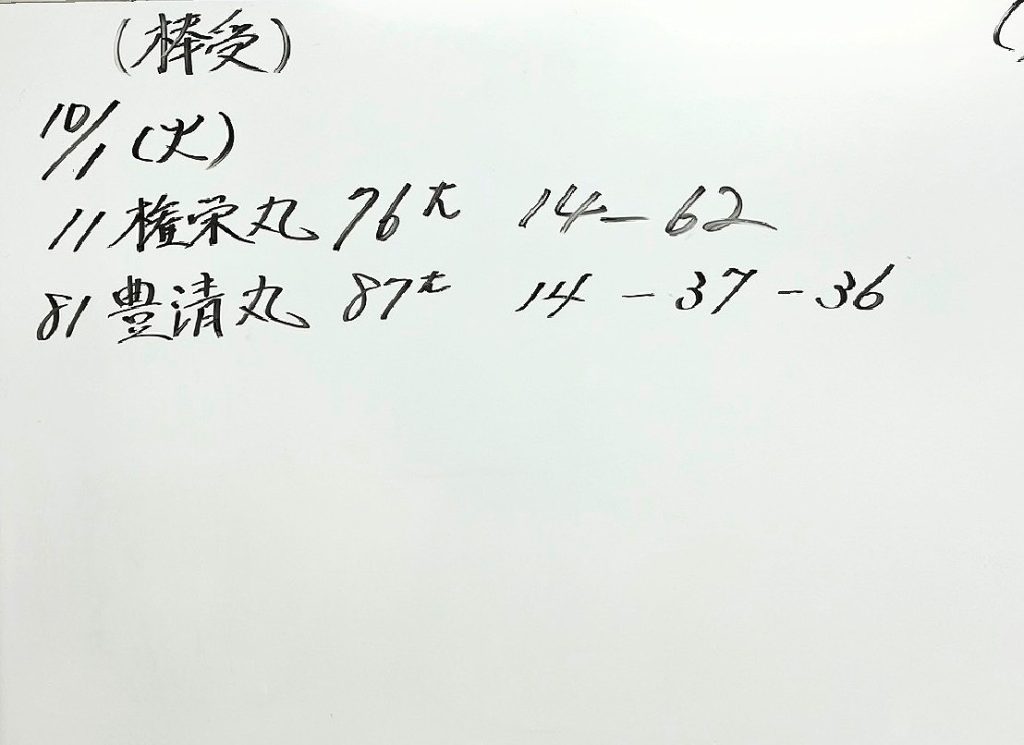 (棒受)
10/1 (火)
11 権栄丸 76㌧ 14-62
81 豊清丸 87㌧ 14-37-36